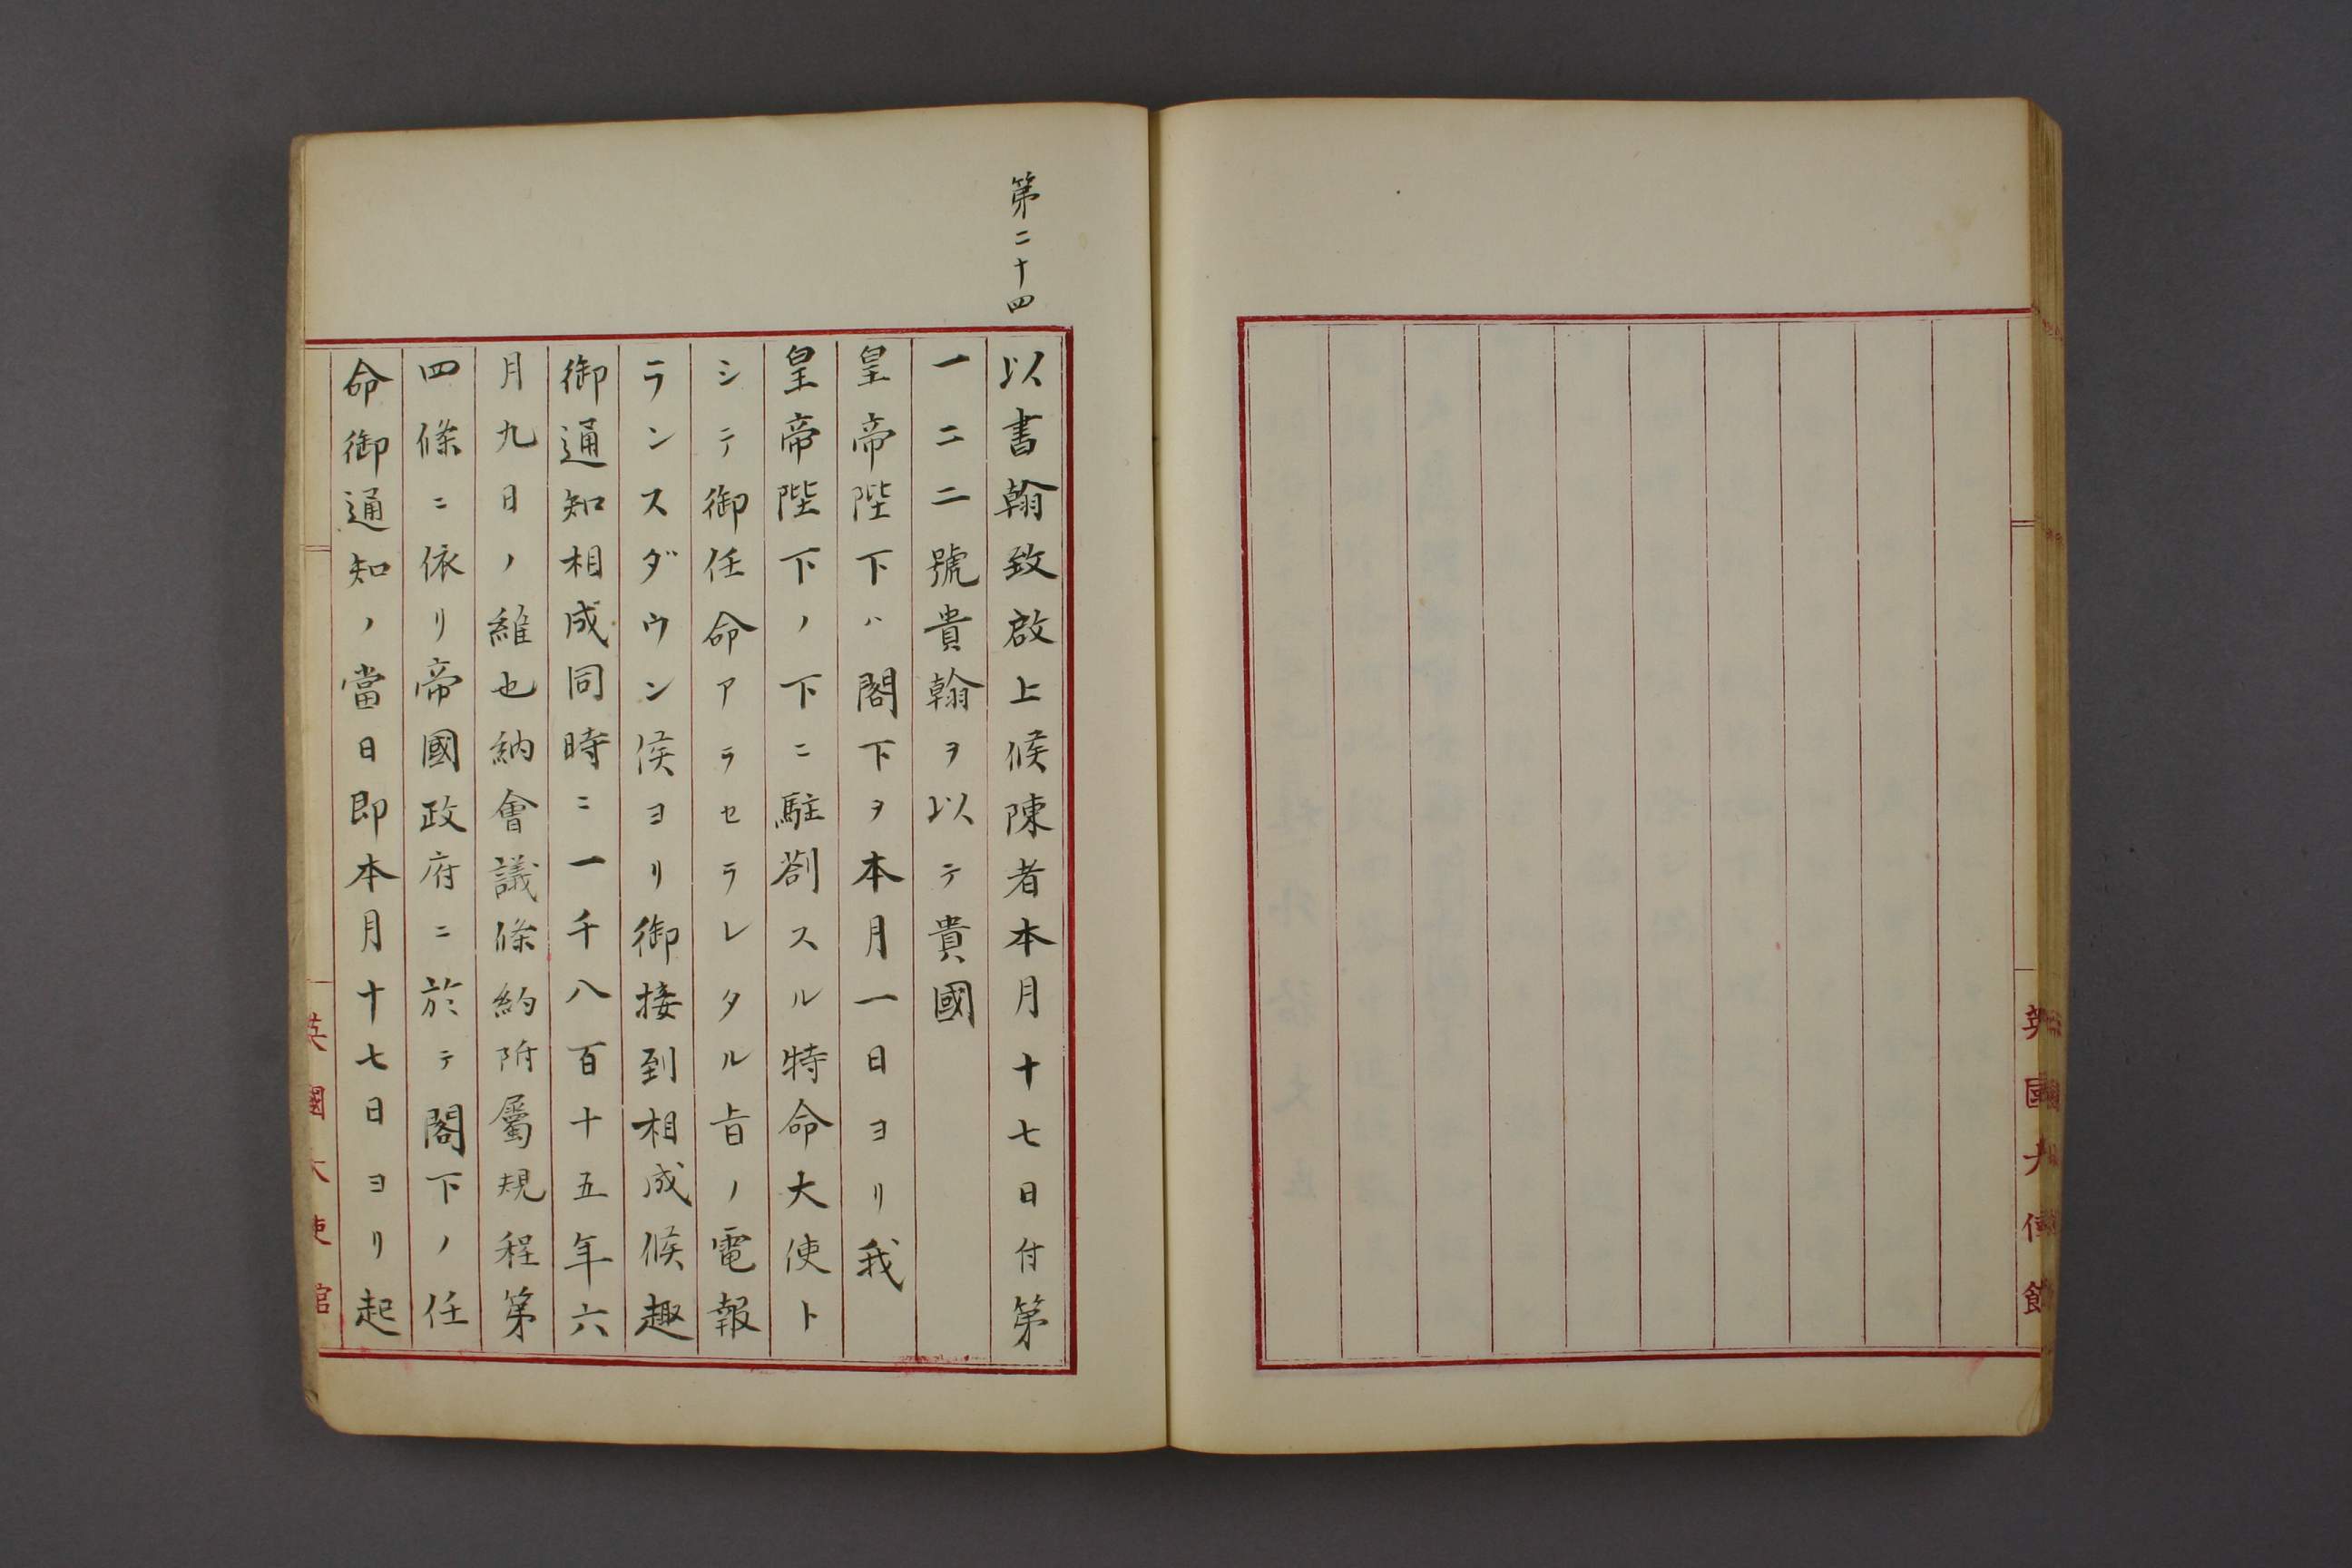 英國大使館
第二十四
以書翰致啟上候陳者本月十七日付第
一二二號貴翰ヲ以テ貴國
皇帝陛下ハ閣下ヲ本月一日ヨリ我
皇帝陛下ノ下ニ駐剳スル特命大使ト
シテ御任命アラセラレタル旨ノ電報
ランスダウン侯ヨリ御接到相成候趣
御通知相成同時ニ一千八百十五年六
月九日ノ維也納會議條約附屬規程第
四條ニ依リ帝國政府ニ於テ閣下ノ任
命御通知ノ當日即本月十七日ヨリ起
英國大使館